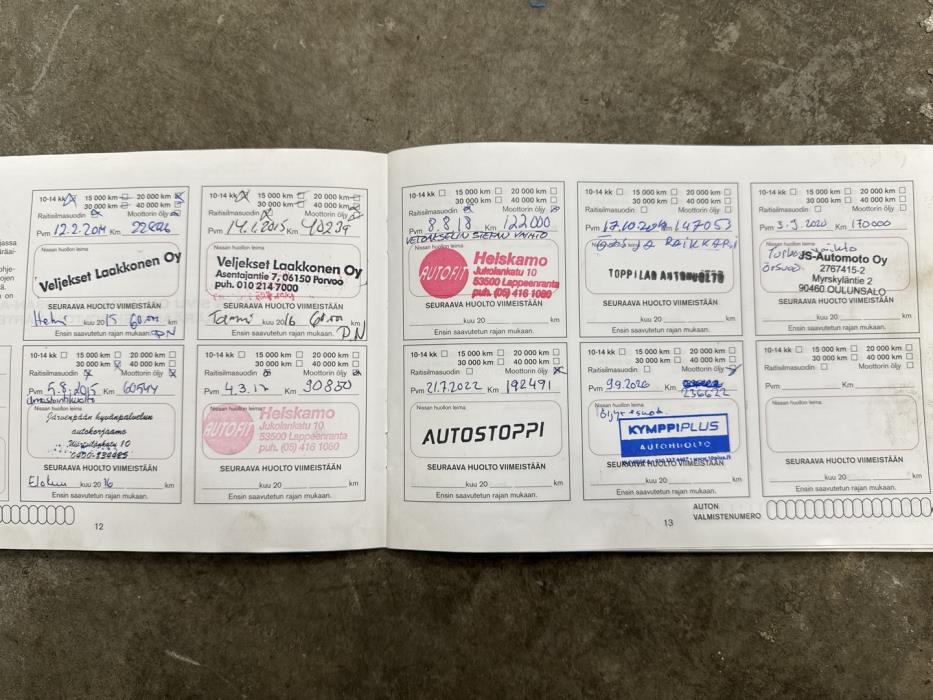 jassa
10-14 kk 15 000 km 20 000 km
30 000 km 40 000 km
Raitisilmasuodin Moottorin öljy
Pvm 12.2.2014 Km
Veljekset Laakkonen Oy
SEURAAVA HUOLTO VIIMEISTÄÄN
Helmi kuu 2015 60.000 km
Ensin saavutetun rajan mukaan. P.N
10-14 kk 15 000 km 20 000 km
30 000 km 40 000 km
Raitisilmasuodin Moottorin öljy
Pvm 14.1.2015 Km 40239
Nissan huollon leima
Veljekset Laakkonen Oy
Asentajantie 7, 06150 Porvoo
puh. 010 214 7000
SEURAAVA HUOLTO VIIMEISTÄÄN
Tammi kuu 2016 60.000 km
Ensin saavutetun rajan mukaan. P.N
10-14 kk 15 000 km 20 000 km
30 000 km 40 000 km
Raitisilmasuodin Moottorin öljy
Pvm 5.8.2015 Km 60544
Ilmastointihuolto
Nissan huollon leima
Järvenpään hyvänpalvelun
autokorjaamo
SEURAAVA HUOLTO VIIMEISTÄÄN
Elokuu kuu 2016 km
Ensin saavutetun rajan mukaan.
10-14 kk 15 000 km 20 000 km
30 000 km 40 000 km
Raitisilmasuodin Moottorin öljy
Pvm 4.3.17 Km 90830
Nissan huollon leima
AUTOFIT Heiskamo
Jukolankatu 10
53500 Lappeenranta
puh. (05) 416 1080
SEURAAVA HUOLTO VIIMEISTÄÄN
kuu 20 km
Ensin saavutetun rajan mukaan.
12
10-14 kk 15 000 km 20 000 km
30 000 km 40 000 km
Raitisilmasuodin Moottorin öljy
Pvm 8.8.18 Km 122000
VETOAKSELIN STEFAN VAIHTO
Nissan huollon leima
AUTOFIT Heiskamo
Jukolankatu 10
53500 Lappeenranta
puh. (05) 416 1080
SEURAAVA HUOLTO VIIMEISTÄÄN
kuu 20 km
Ensin saavutetun rajan mukaan.
10-14 kk 15 000 km 20 000 km
30 000 km 40 000 km
Raitisilmasuodin Moottorin öljy
Pvm 17.10.2019 Km 147053
TOPPILAN AUTOHUOLTO
SEURAAVA HUOLTO VIIMEISTÄÄN
kuu 20 km
Ensin saavutetun rajan mukaan.
10-14 kk 15 000 km 20 000 km
30 000 km 40 000 km
Raitisilmasuodin Moottorin öljy
Pvm 3.9.2020 Km 170000
Nissan huollon leima
JS-Automoto Oy
2767415-2
Myrskyläntie 2
90460 OULUNSALO
SEURAAVA HUOLTO VIIMEISTÄÄN
kuu 20 km
Ensin saavutetun rajan mukaan.
10-14 kk 15 000 km 20 000 km
30 000 km 40 000 km
Raitisilmasuodin Moottorin öljy
Pvm 21.7.2022 Km 192491
Nissan huollon leima
AUTOSTOPPI
SEURAAVA HUOLTO VIIMEISTÄÄN
kuu 20 km
Ensin saavutetun rajan mukaan.
10-14 kk 15 000 km 20 000 km
30 000 km 40 000 km
Raitisilmasuodin Moottorin öljy
Pvm Km
236622
Nissan huollon leima
KYMPPIPLUS
AUTOHUOLTO
SEURAAVA HUOLTO VIIMEISTÄÄN
kuu 20 km
Ensin saavutetun rajan mukaan.
10-14 kk 15 000 km 20 000 km
30 000 km 40 000 km
Raitisilmasuodin Moottorin öljy
Pvm Km
Nissan huollon leima
SEURAAVA HUOLTO VIIMEISTÄÄN
kuu 20 km
Ensin saavutetun rajan mukaan.
AUTON
VALMISTENUMERO
13